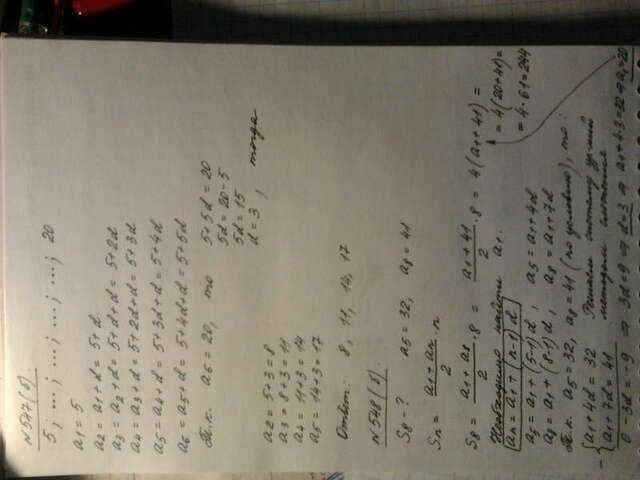 №527(б)
5; ...; ...; ...; ...; 20
a₁ = 5
a₂ = a₁+d = 5+d
a₃ = a₂+d = 5+d+d = 5+2d
a₄ = a₃+d = 5+2d+d = 5+3d
a₅ = a₄+d = 5+3d+d = 5+4d
a₆ = a₅+d = 5+4d+d = 5+5d
Т.к. a₆=20, то 5+5d=20
5d=20-5
5d=15
d=3, тогда
a₂=5+3=8
a₃=8+3=11
a₄=11+3=14
a₅=14+3=17
Ответ: 8, 11, 14, 17
№548(б).
S₈-? a₅=32, a₈=41
Sₙ = (a₁+aₙ)/2 · n
S₈ = (a₁+a₈)/2 · 8 = (a₁+41)/2 · 8 = 4(a₁+41) =
= 4(20+41)=
= 4·61=244
Необходимо найти a₁.
aₙ=a₁+(n-1)d
a₅=a₁+(5-1)d, a₅=a₁+4d
a₈=a₁+(8-1)d, a₈=a₁+7d
Т.к. a₅=32, a₈=41 (по условию), то:
-{a₁+4d=32 Решаем систему ур-ний
a₁+7d=41 методом сложения
0-3d=-9 ⇒ 3d=9 ⇒ d=3 ⇒ a₁+4·3=32 ⇒ a₁=20